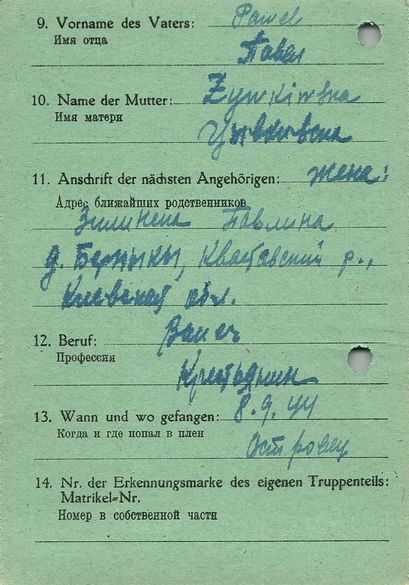 9. Vorname des Vaters: Pawel
Имя отца
Павел
10. Name der Mutter:
Имя матери
11. Anschrift der nächsten Angehörigen: жена:
Адрес ближайших родственников
Павлина
д.
Киевская обл.
12. Beruf: Bauer
Профессия
13. Wann und wo gefangen: 8.9.44
Когда и где попал в плен
Островец
14. Nr. der Erkennungsmarke des eigenen Truppenteils:
Matrikel-Nr.
Номер в собственной части